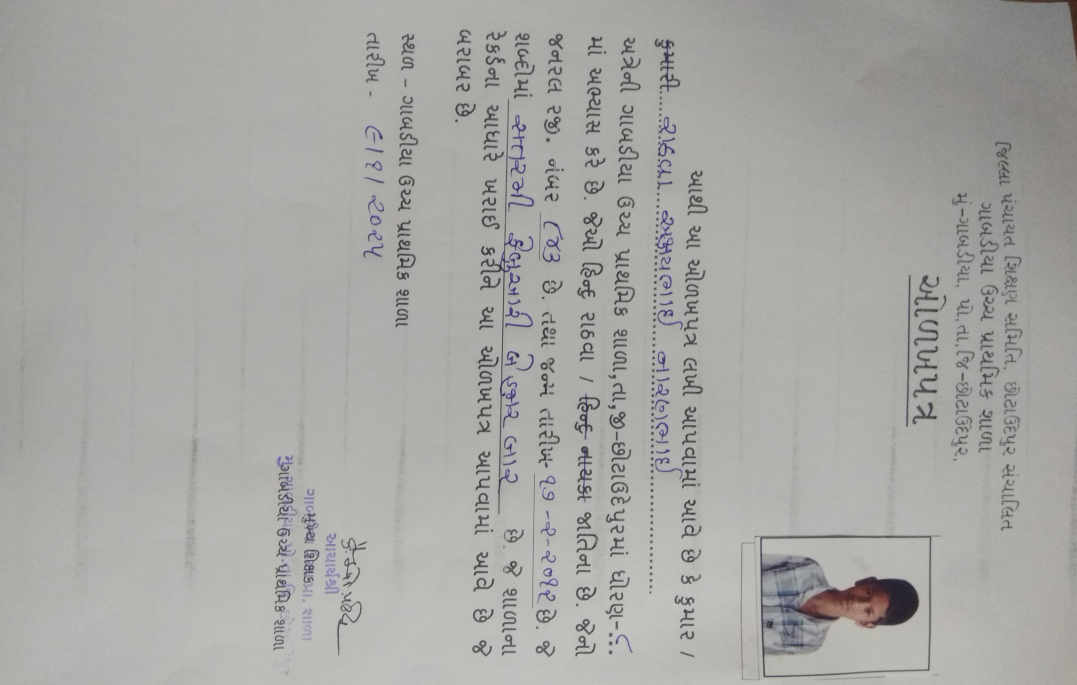 જિલ્લા પંચાયત શિક્ષણ સમિતિ, છોટાઉદેપુર સંચાલિત
ગાબડીયા ઉચ્ચ પ્રાથમિક શાળા
મું-ગાબડીયા, પો.તા.જિ-છોટાઉદેપુર.
ઓળખપત્ર
આથી આ ઓળખપત્ર લખી આપવામાં આવે છે કે કુમાર /
કુમારી..... રાઠવા... અભયભાઈ નારણભાઈ.....
અત્રેની ગાબડીયા ઉચ્ચ પ્રાથમિક શાળા,તા,જી-છોટાઉદેપુરમાં ધોરણ-૮...
માં અભ્યાસ કરે છે. જેઓ હિન્દુ રાઠવા / હિન્દુ નાયકા જાતિના છે. જેનો
જનરલ રજી. નંબર છે. તથા જન્મ તારીખ- ૧૭-૨-૨૦૧૨ છે. જે
શબ્દોમાં સત્તરમી ફેબ્રુઆરી બે હજાર બાર છે. જે શાળાના
રેકર્ડના આધારે ખરાઈ કરીને આ ઓળખપત્ર આપવામાં આવે છે જે
બરાબર છે.
સ્થળ - ગાબડીયા ઉચ્ચ પ્રાથમિક શાળા
તારીખ - ૮/૧/૨૦૨૫
આચાર્યશ્રી
મુખ્ય શિક્ષક
ગાબડીયા ઉચ્ચ પ્રાથમિક શાળા